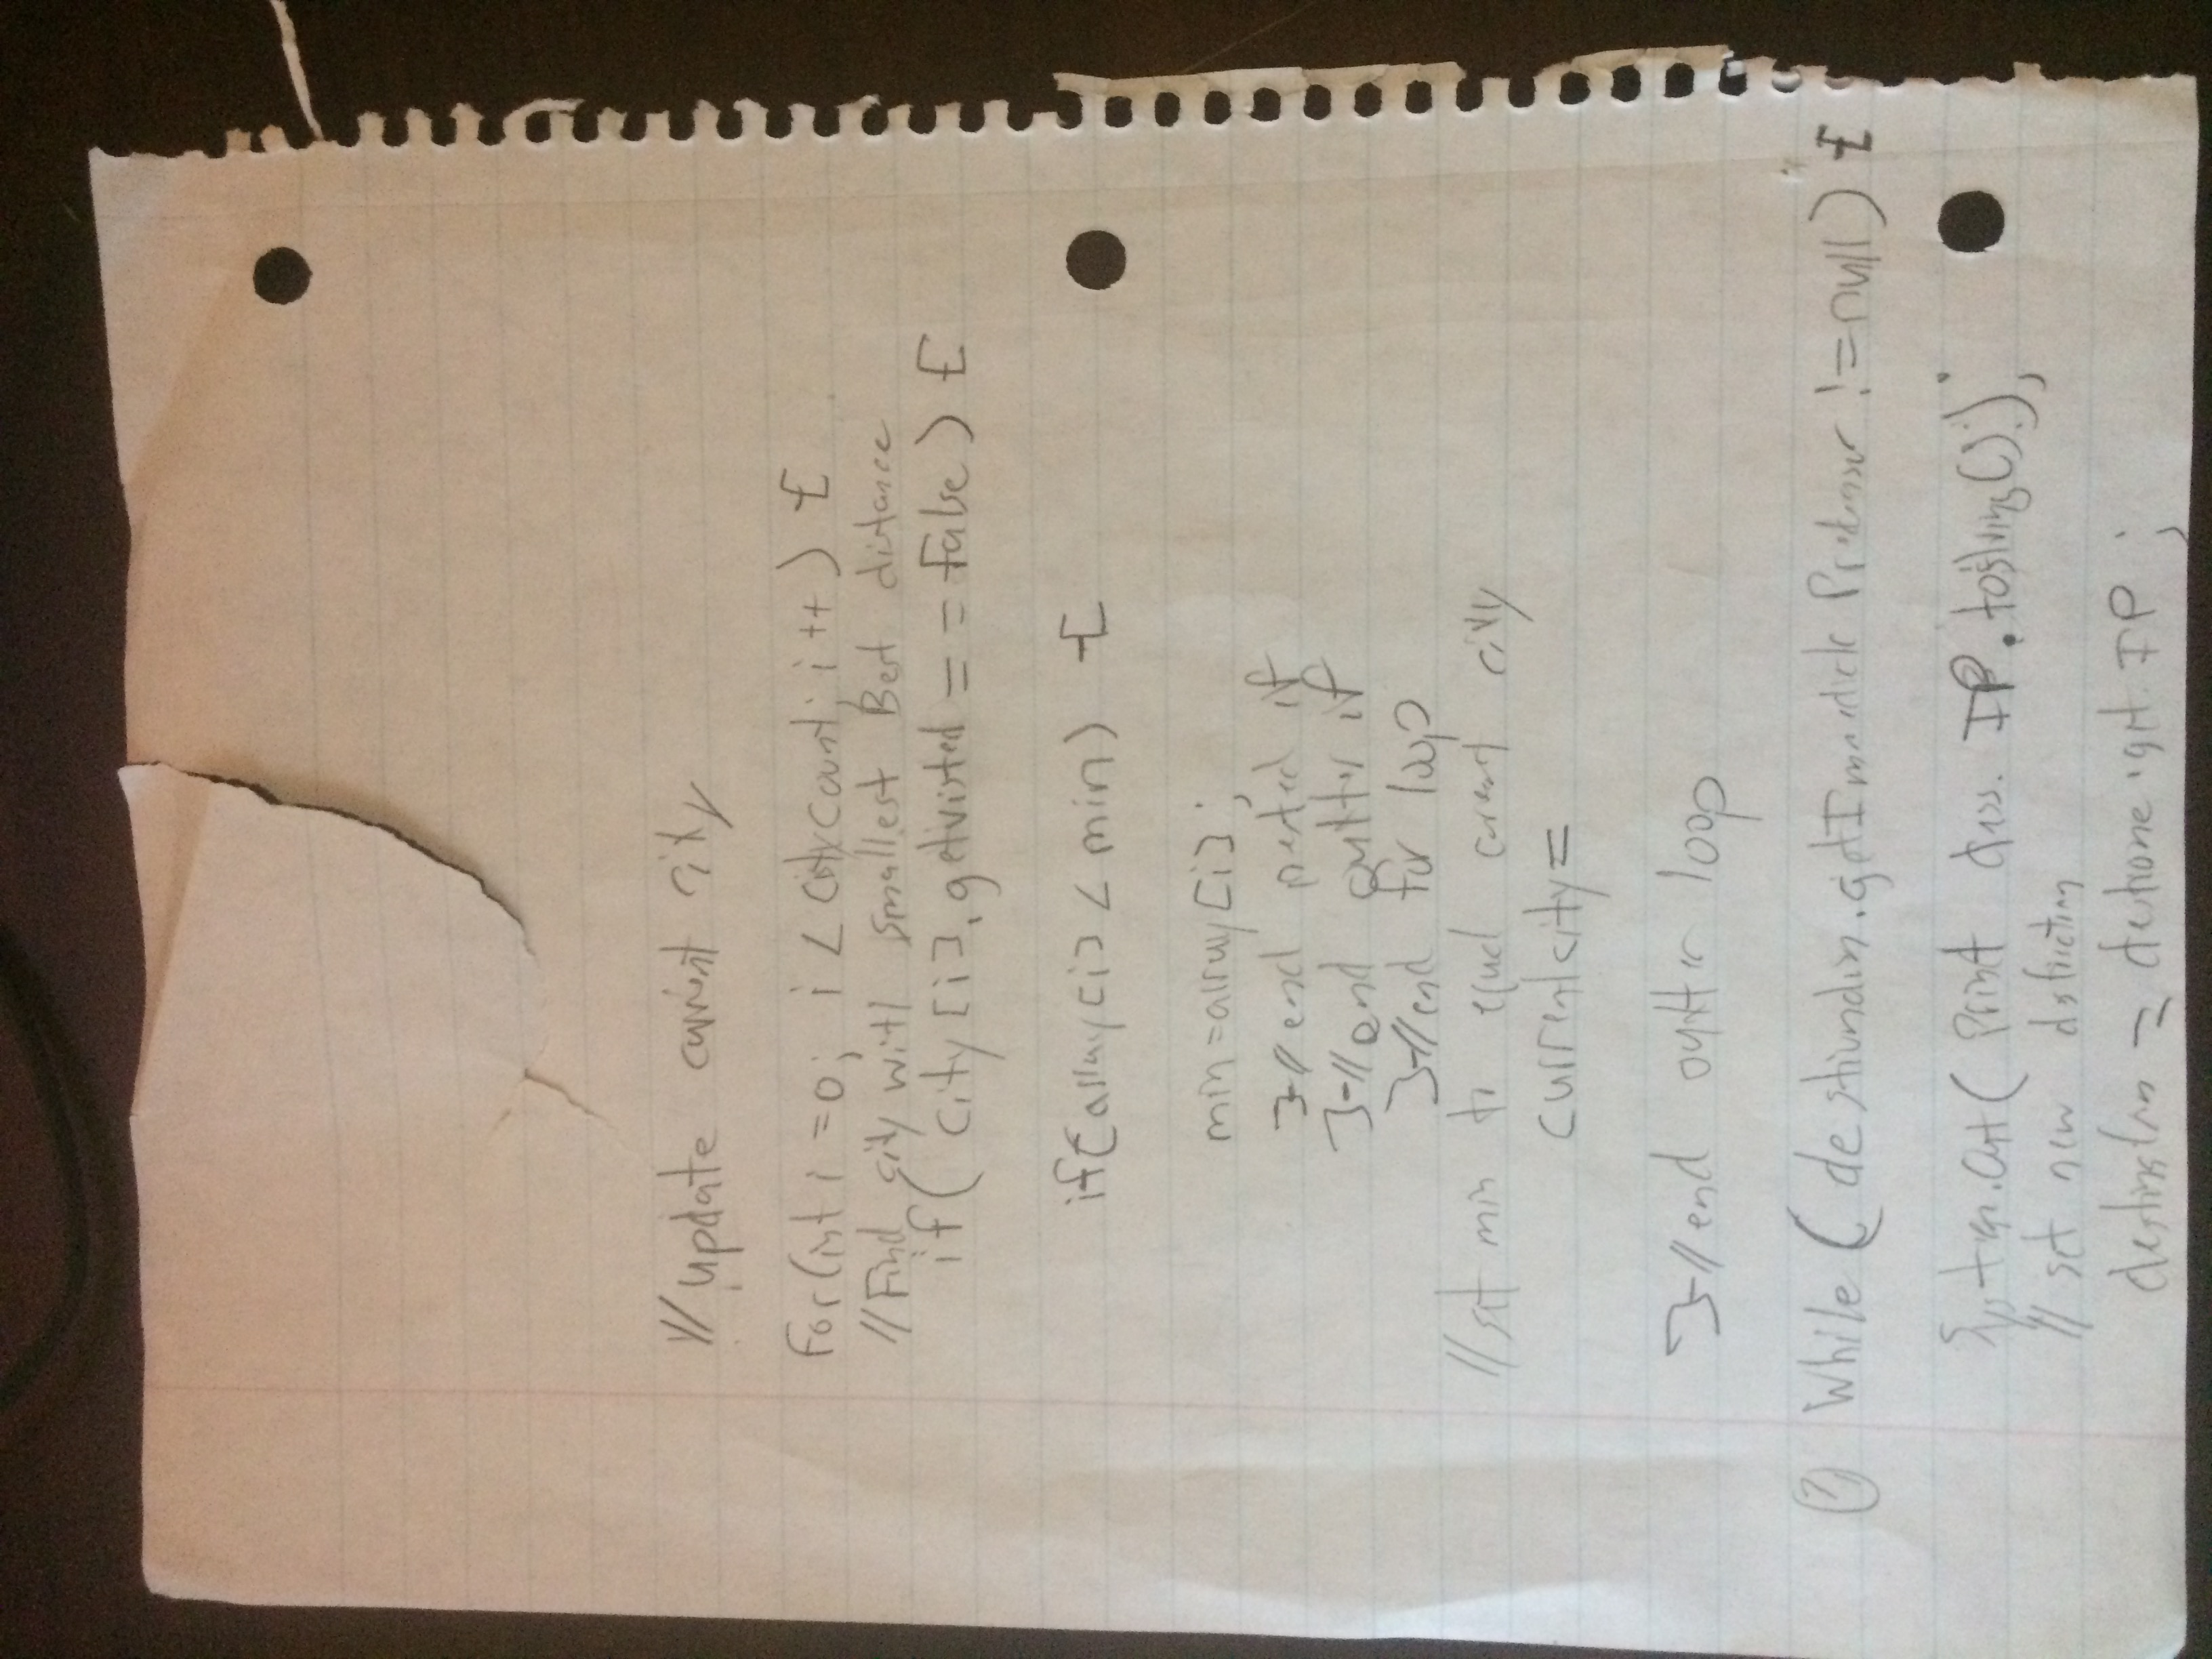 // update current city
For(int i =0; i < citycount; i++) {
//Find city with smallest Best distance
if( city[i].getvisted = = False) {
if(array[i] < min) {
min=array[i];
}//end nested if
}//end outter if
}//end for loop
//set min to equal current city
currentcity=
}//end outter loop
② While ( .getImmediate Predecessor !=null) {
System.Out( Print IP.toString());
// set new
= .get. IP ;